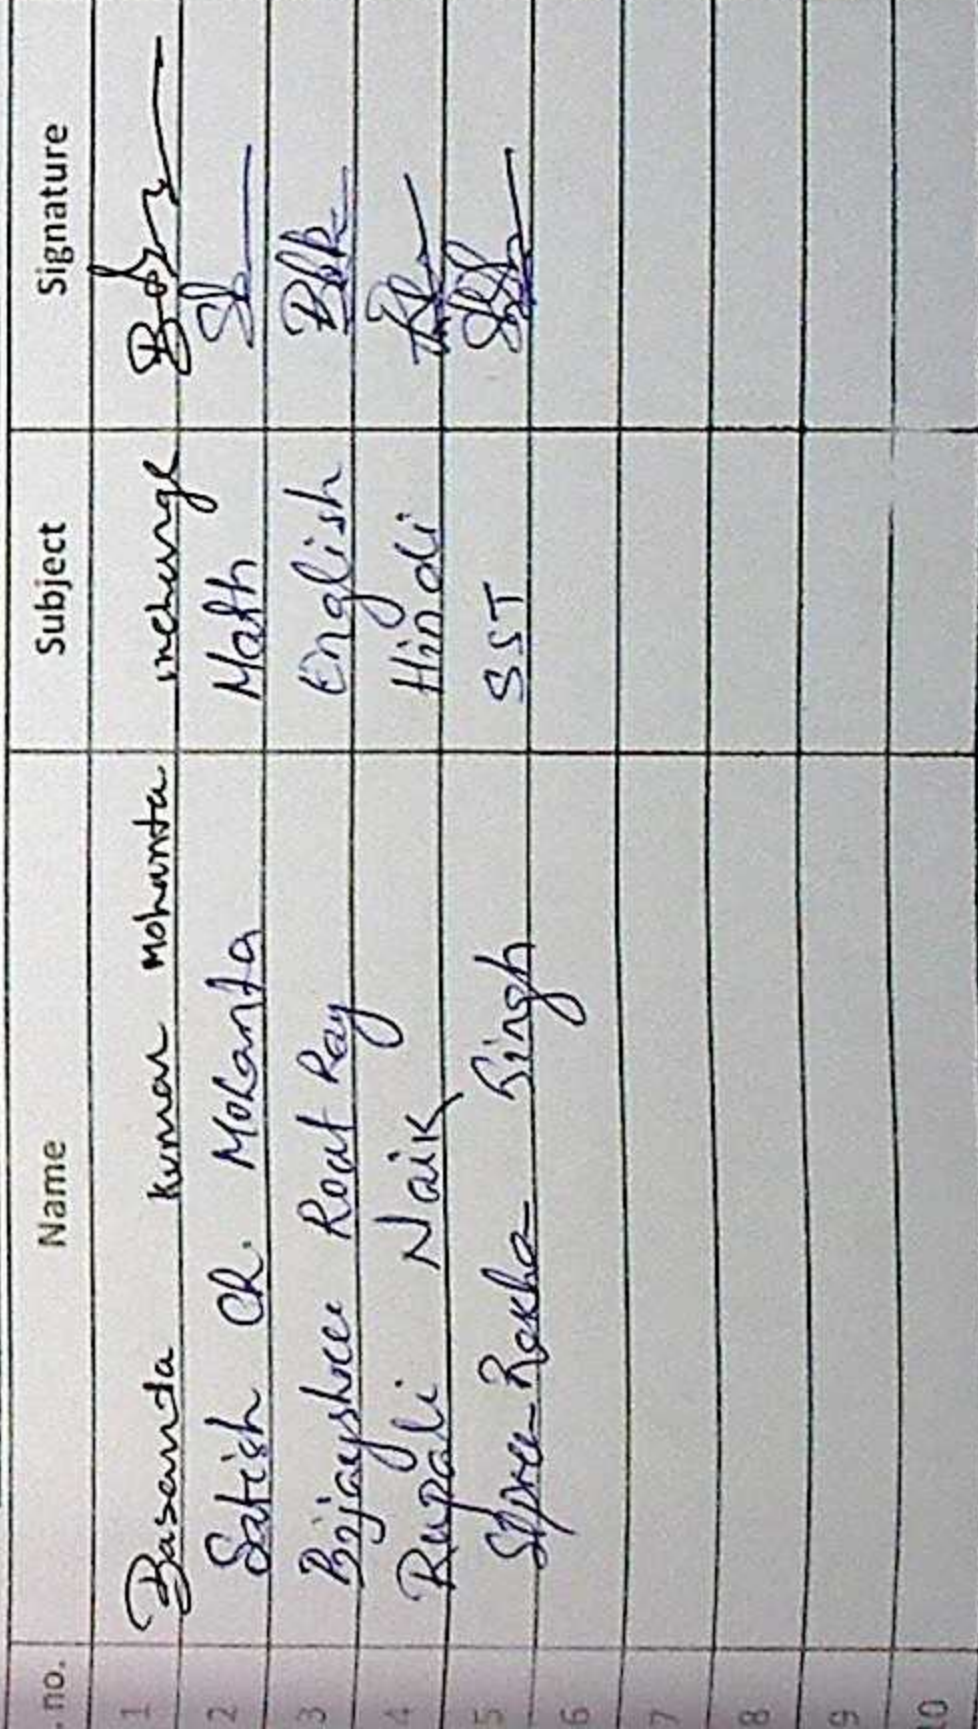 . no. Name Subject Signature
1 Basanta Kumar Mohanta incharge
2 Satish Ch. Mohanta Math
3 Bijayshree Rout Ray English
4 Rupali Naik Hindi
5 Singh SST
6
7
8
9
10